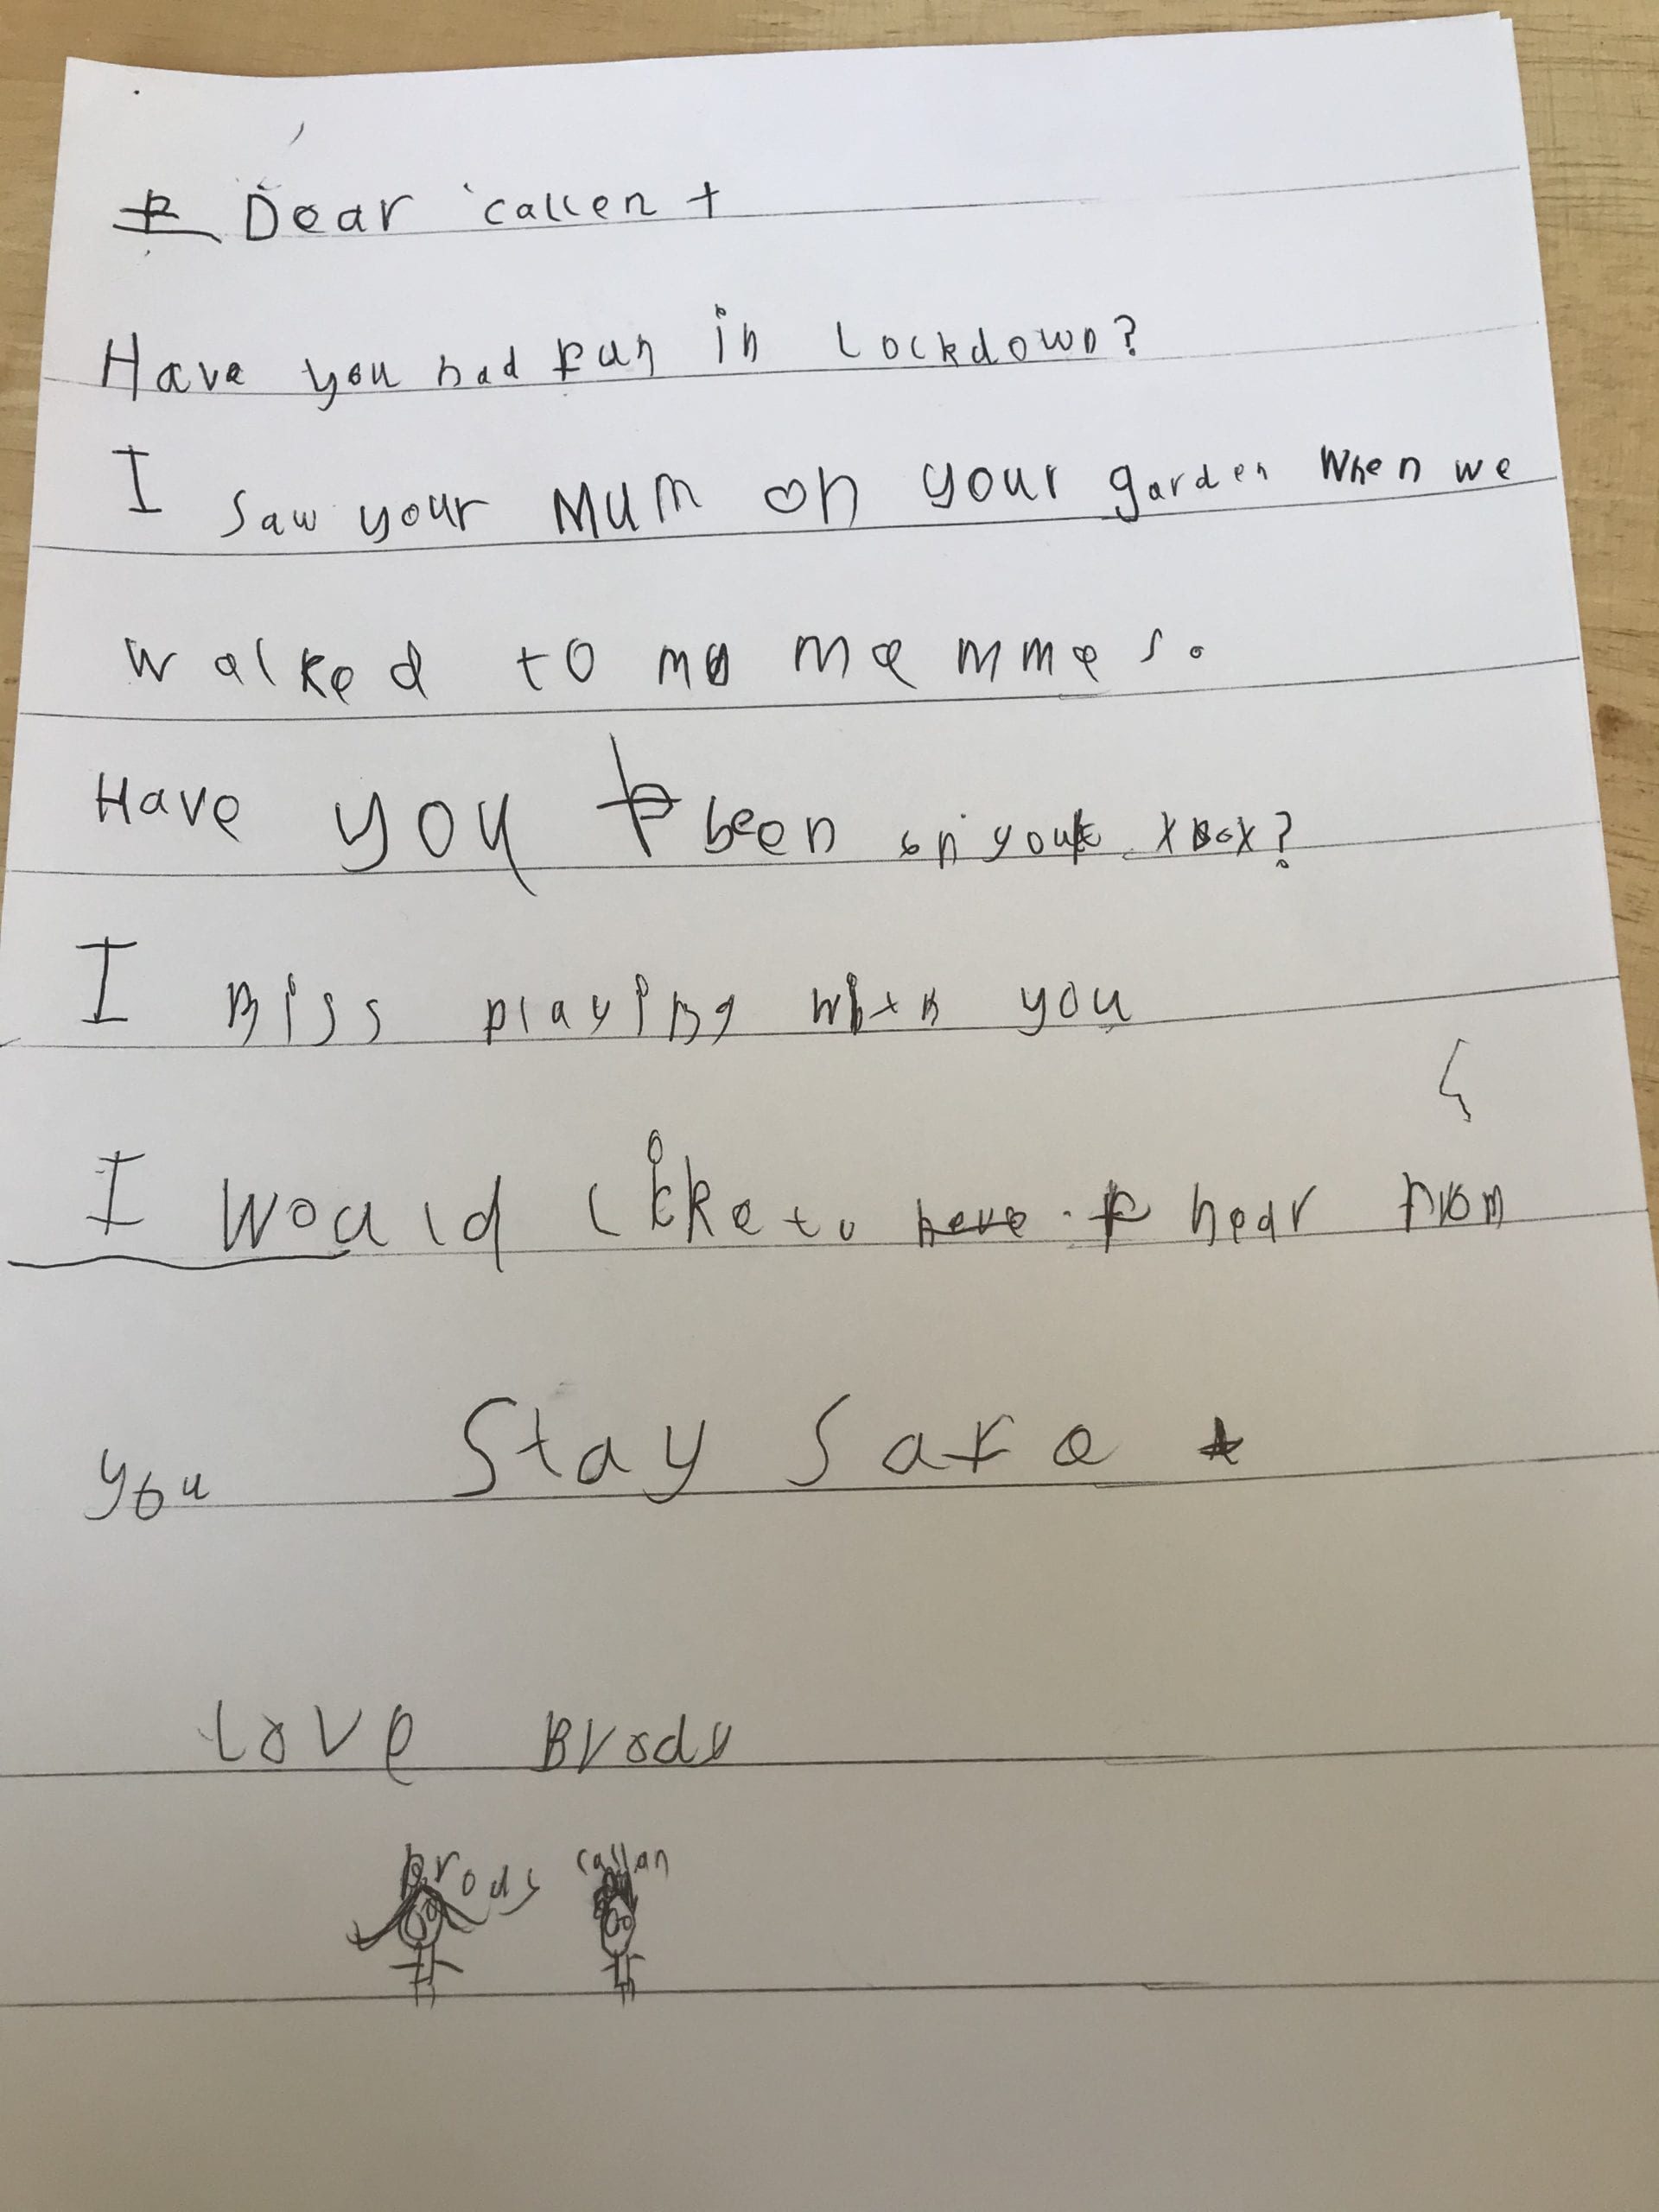 Dear callen
Have you had fun in Lockdown?
I saw your Mum on your garden when we
walked to my memmes.
Have you been on your xbox?
I miss playing with you
I would like to hear from
you Stay safe
Love Brody
Brody callan